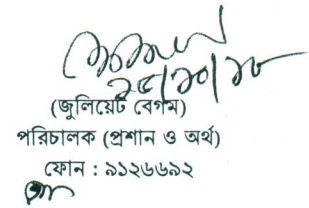 ২৫/১০/১৮
(জুলিয়েট বেগম)
পরিচালক (প্রশান ও অর্থ)
ফোন : ৯১২৬৬৯২